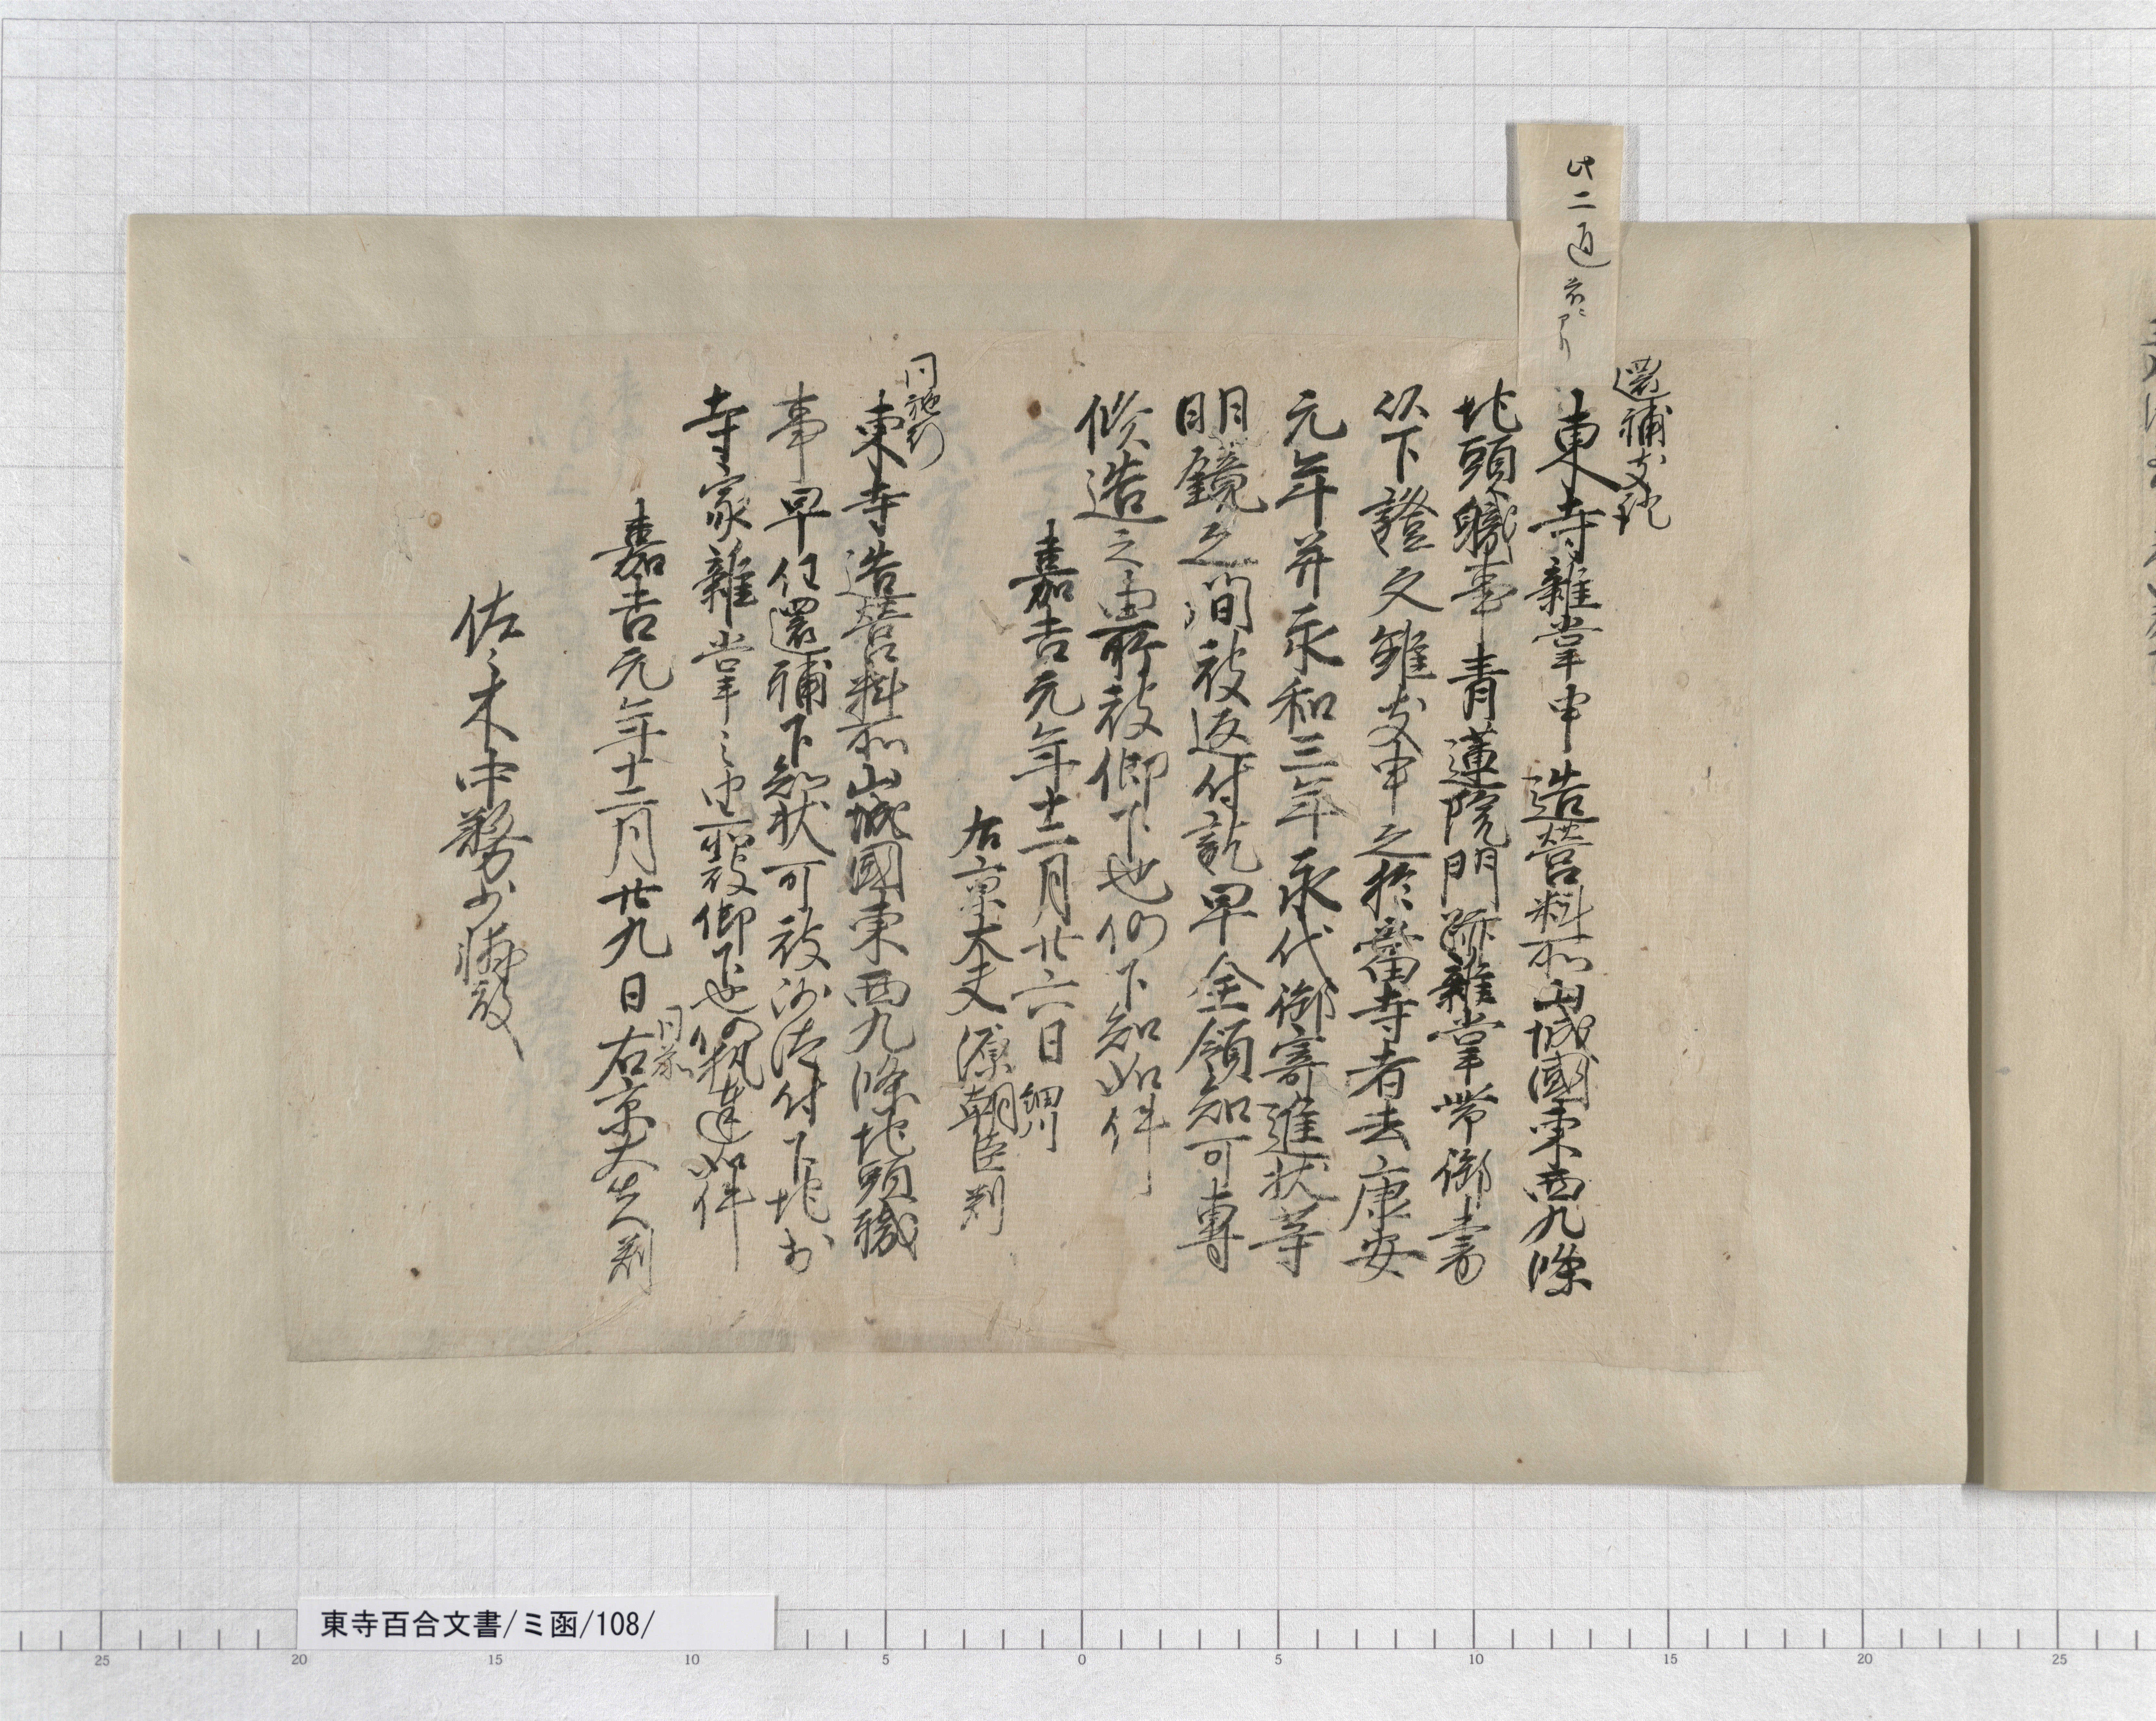 此二通
還補支証
東寺雑掌申造營料所山城國東西九條
地頭職事青蓮院門跡雑掌帯御書
以下證文雖支申之於當寺者去康安
元年并永和三年永代御寄進状等
明鏡之間被返付訖早全領知可專
修造之由所被仰下也仍下知如件
嘉吉元年十二月廿六日 細川
右京大夫源朝臣判
同施行
東寺造營料所山城國東西九條地頭職
事早任還補下知状可被沙汰付下地於
寺家雑掌之由所被仰下也仍執達如件
嘉吉元年十二月廿九日右京大夫判
同前
佐々木中務少輔殿
東寺百合文書/ミ函/108/
25 20 15 10 5 0 5 10 15 20 25